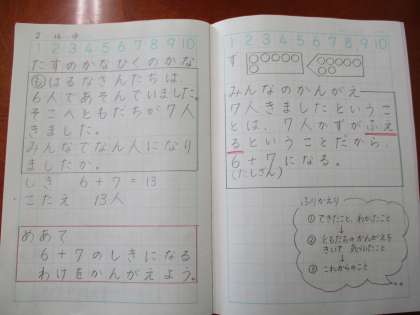 1 2 3 4 5 6 7 8 9 10
たすのかなひくのかな
も はるなさんたちは、
6人であそんでいました。
そこへともだちが7人
きました。
みんなでなん人になり
ましたか。
しき 6+7=13
こたえ 13人
めあて
6+7のしきになる
わけをかんがえよう。
1 2 3 4 5 6 7 8 9 10
ず
みんなのかんがえ
7人きましたというこ
とは、7人かずがふえ
るということだから、
6+7になる。
(たしざん)
ふりかえり
① できたこと、わかったこと
↓
② ともだちのかんがえを
きいて
↓
③ これからのこと